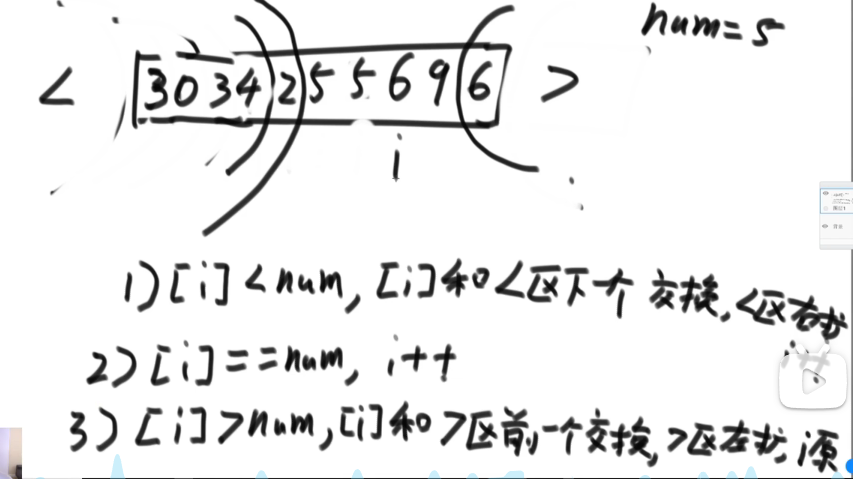 num=5
< 3 0 3 4 2 5 5 6 9 6 >
i
1) [i]<num, [i]和<区下一个 交换, <区右扩
i++
2) [i]==num, i++
3) [i]>num, [i]和>区前一个交换, >区左扩, i原